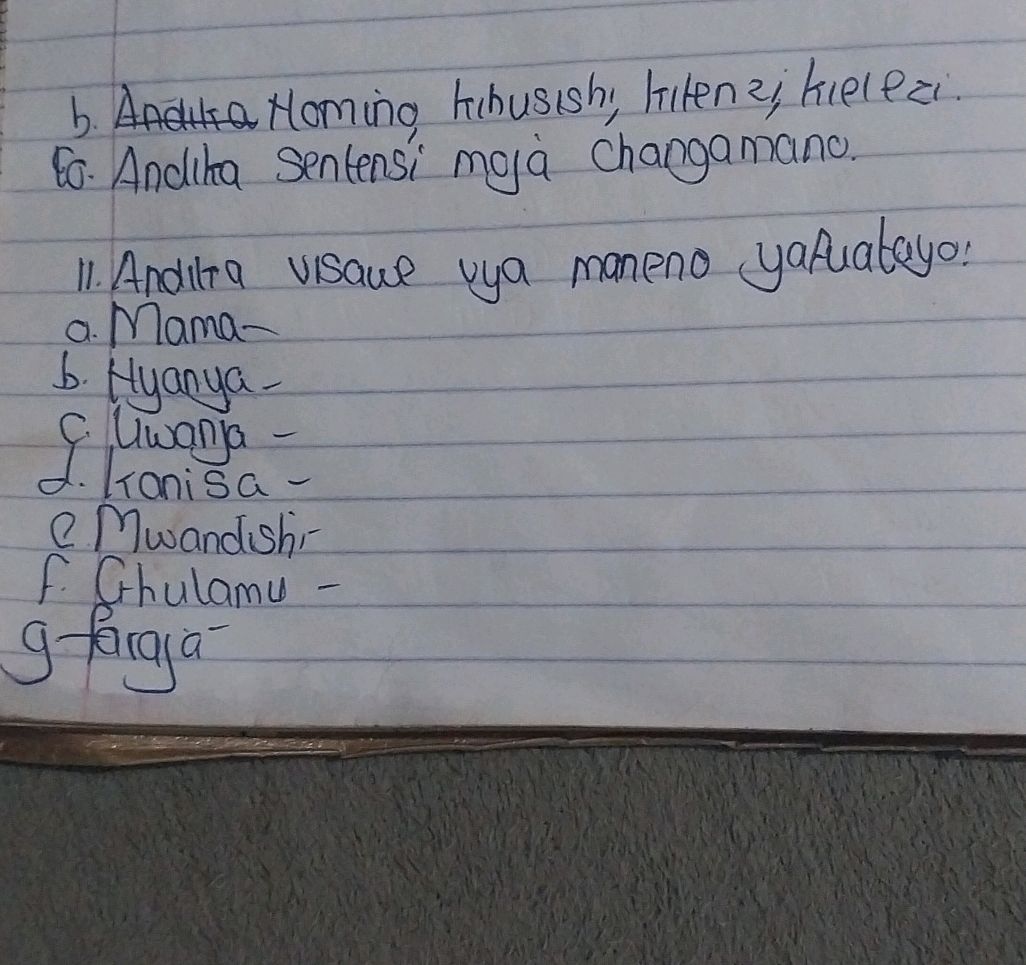 b. Andika Nomino, kihusishi, kitenzi, kielezi.
10. Andika sentensi moja changamano.
11. Andika visawe vya maneno yafuatayo:
a. Mama-
b. Nyanya-
c. Uwanja -
d. kanisa -
e. Mwandishi-
f. Ghulamu -
g-faraja-